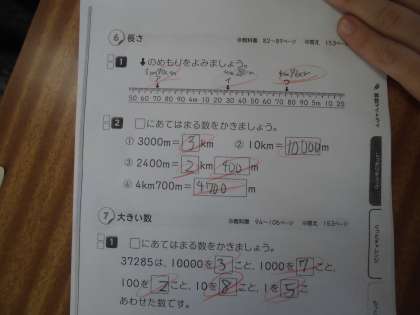 6 長さ ※教科書 82〜89ページ ※答え 153ページ
1 ↓のめもりをよみましょう。
ア イ ウ
50 60 70 80 90 10 20 30 40 50 60 70 80 90 5m 10 20
2 □にあてはまる数をかきましょう。
① 3000m=3km ② 10km=10000m
③ 2400m=2km400m
④ 4km700m=4700m
7 大きい数 ※教科書 94〜106ページ ※答え 153ページ
1 □にあてはまる数をかきましょう。
37285は、10000を3こと、1000を7こと、
100を2こと、10を8こと、1を5こ
あわせた数です。